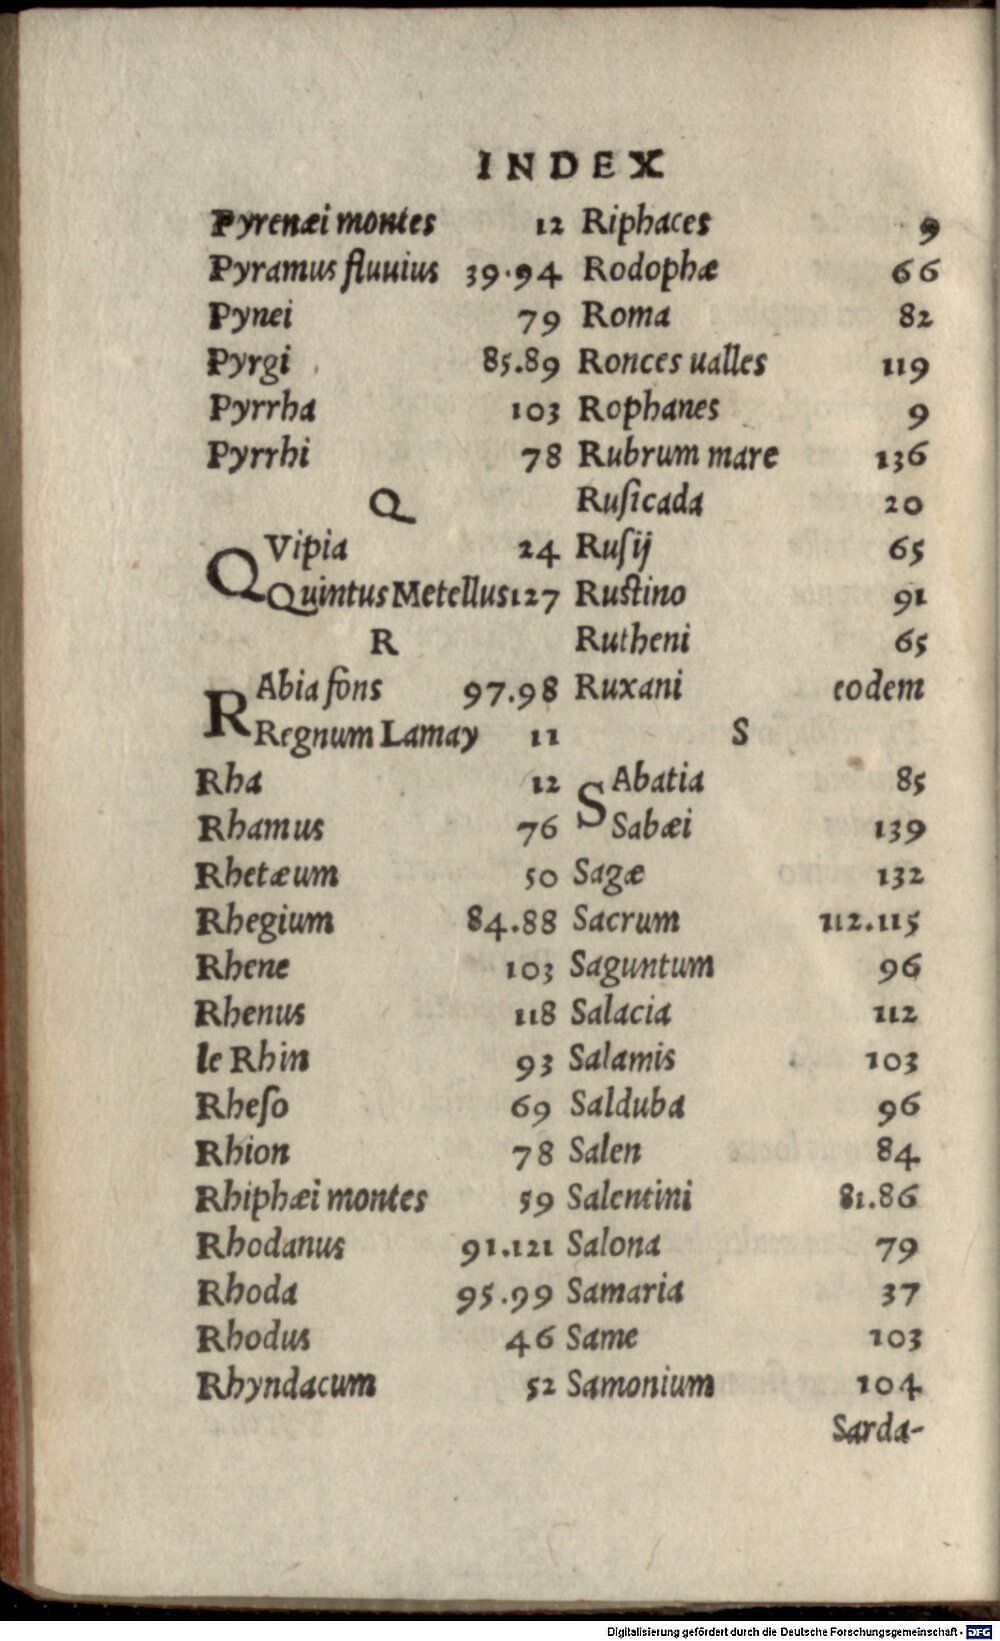 INDEX
Pyrenæi montes 12
Pyramus fluuius 39.94
Pynei 79
Pyrgi 85.89
Pyrrha 103
Pyrrhi 78
Q
QVipia 24
Quintus Metellus 127
R
RAbia fons 97.98
Regnum Lamay 11
Rha 12
Rhamus 76
Rhetæum 50
Rhegium 84.88
Rhene 103
Rhenus 118
le Rhin 93
Rheſo 69
Rhion 78
Rhiphæi montes 59
Rhodanus 91.121
Rhoda 95.99
Rhodus 46
Rhyndacum 52
Riphaces 9
Rodophæ 66
Roma 82
Ronces ualles 119
Rophanes 9
Rubrum mare 136
Ruſicada 20
Ruſij 65
Ruſtino 91
Rutheni 65
Ruxani eodem
S
SAbatia 85
Sabæi 139
Sagæ 132
Sacrum 112.115
Saguntum 96
Salacia 112
Salamis 103
Salduba 96
Salen 84
Salentini 81.86
Salona 79
Samaria 37
Same 103
Samonium 104
Sarda-
Digitalisierung gefördert durch die Deutsche Forschungsgemeinschaft - DFG